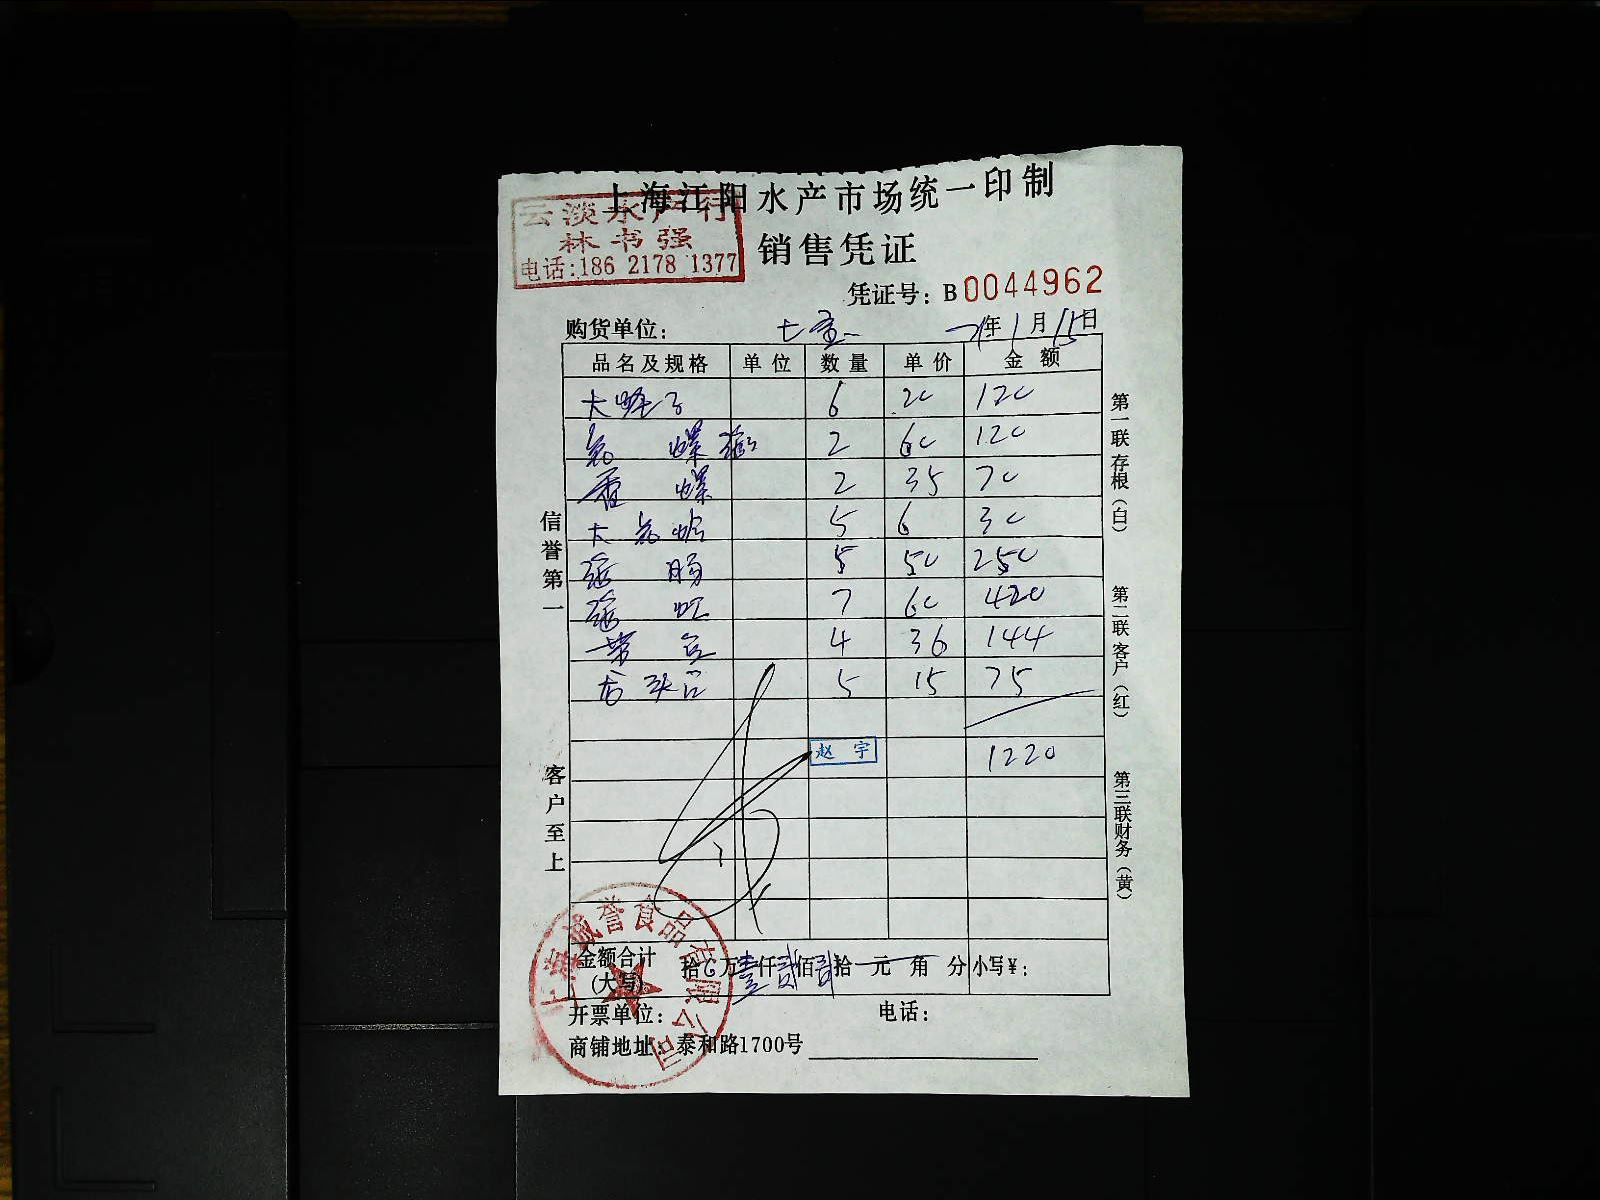 上海江阳水产市场统一印制
云淡水产行
林书强
电话:186 2178 1377
销售凭证
凭证号: B0044962
购货单位: 七宝 21年1月15日
品名及规格 单位 数量 单价 金额
大蛏子 6 20 120
花螺 2 60 120
香螺 2 35 70
大花蛤 5 6 30
肠 5 50 250
虾 7 60 420
带鱼 4 36 144
龙头 5 15 75
赵宇 1220
金额合计(大写) 拾0万壹仟贰佰贰拾 元 角 分 小写¥:
开票单位: 电话:
商铺地址: 泰和路1700号
信誉第一
客户至上
第一联存根(白)
第二联客户(红)
第三联财务(黄)
上海诚誉食品有限公司